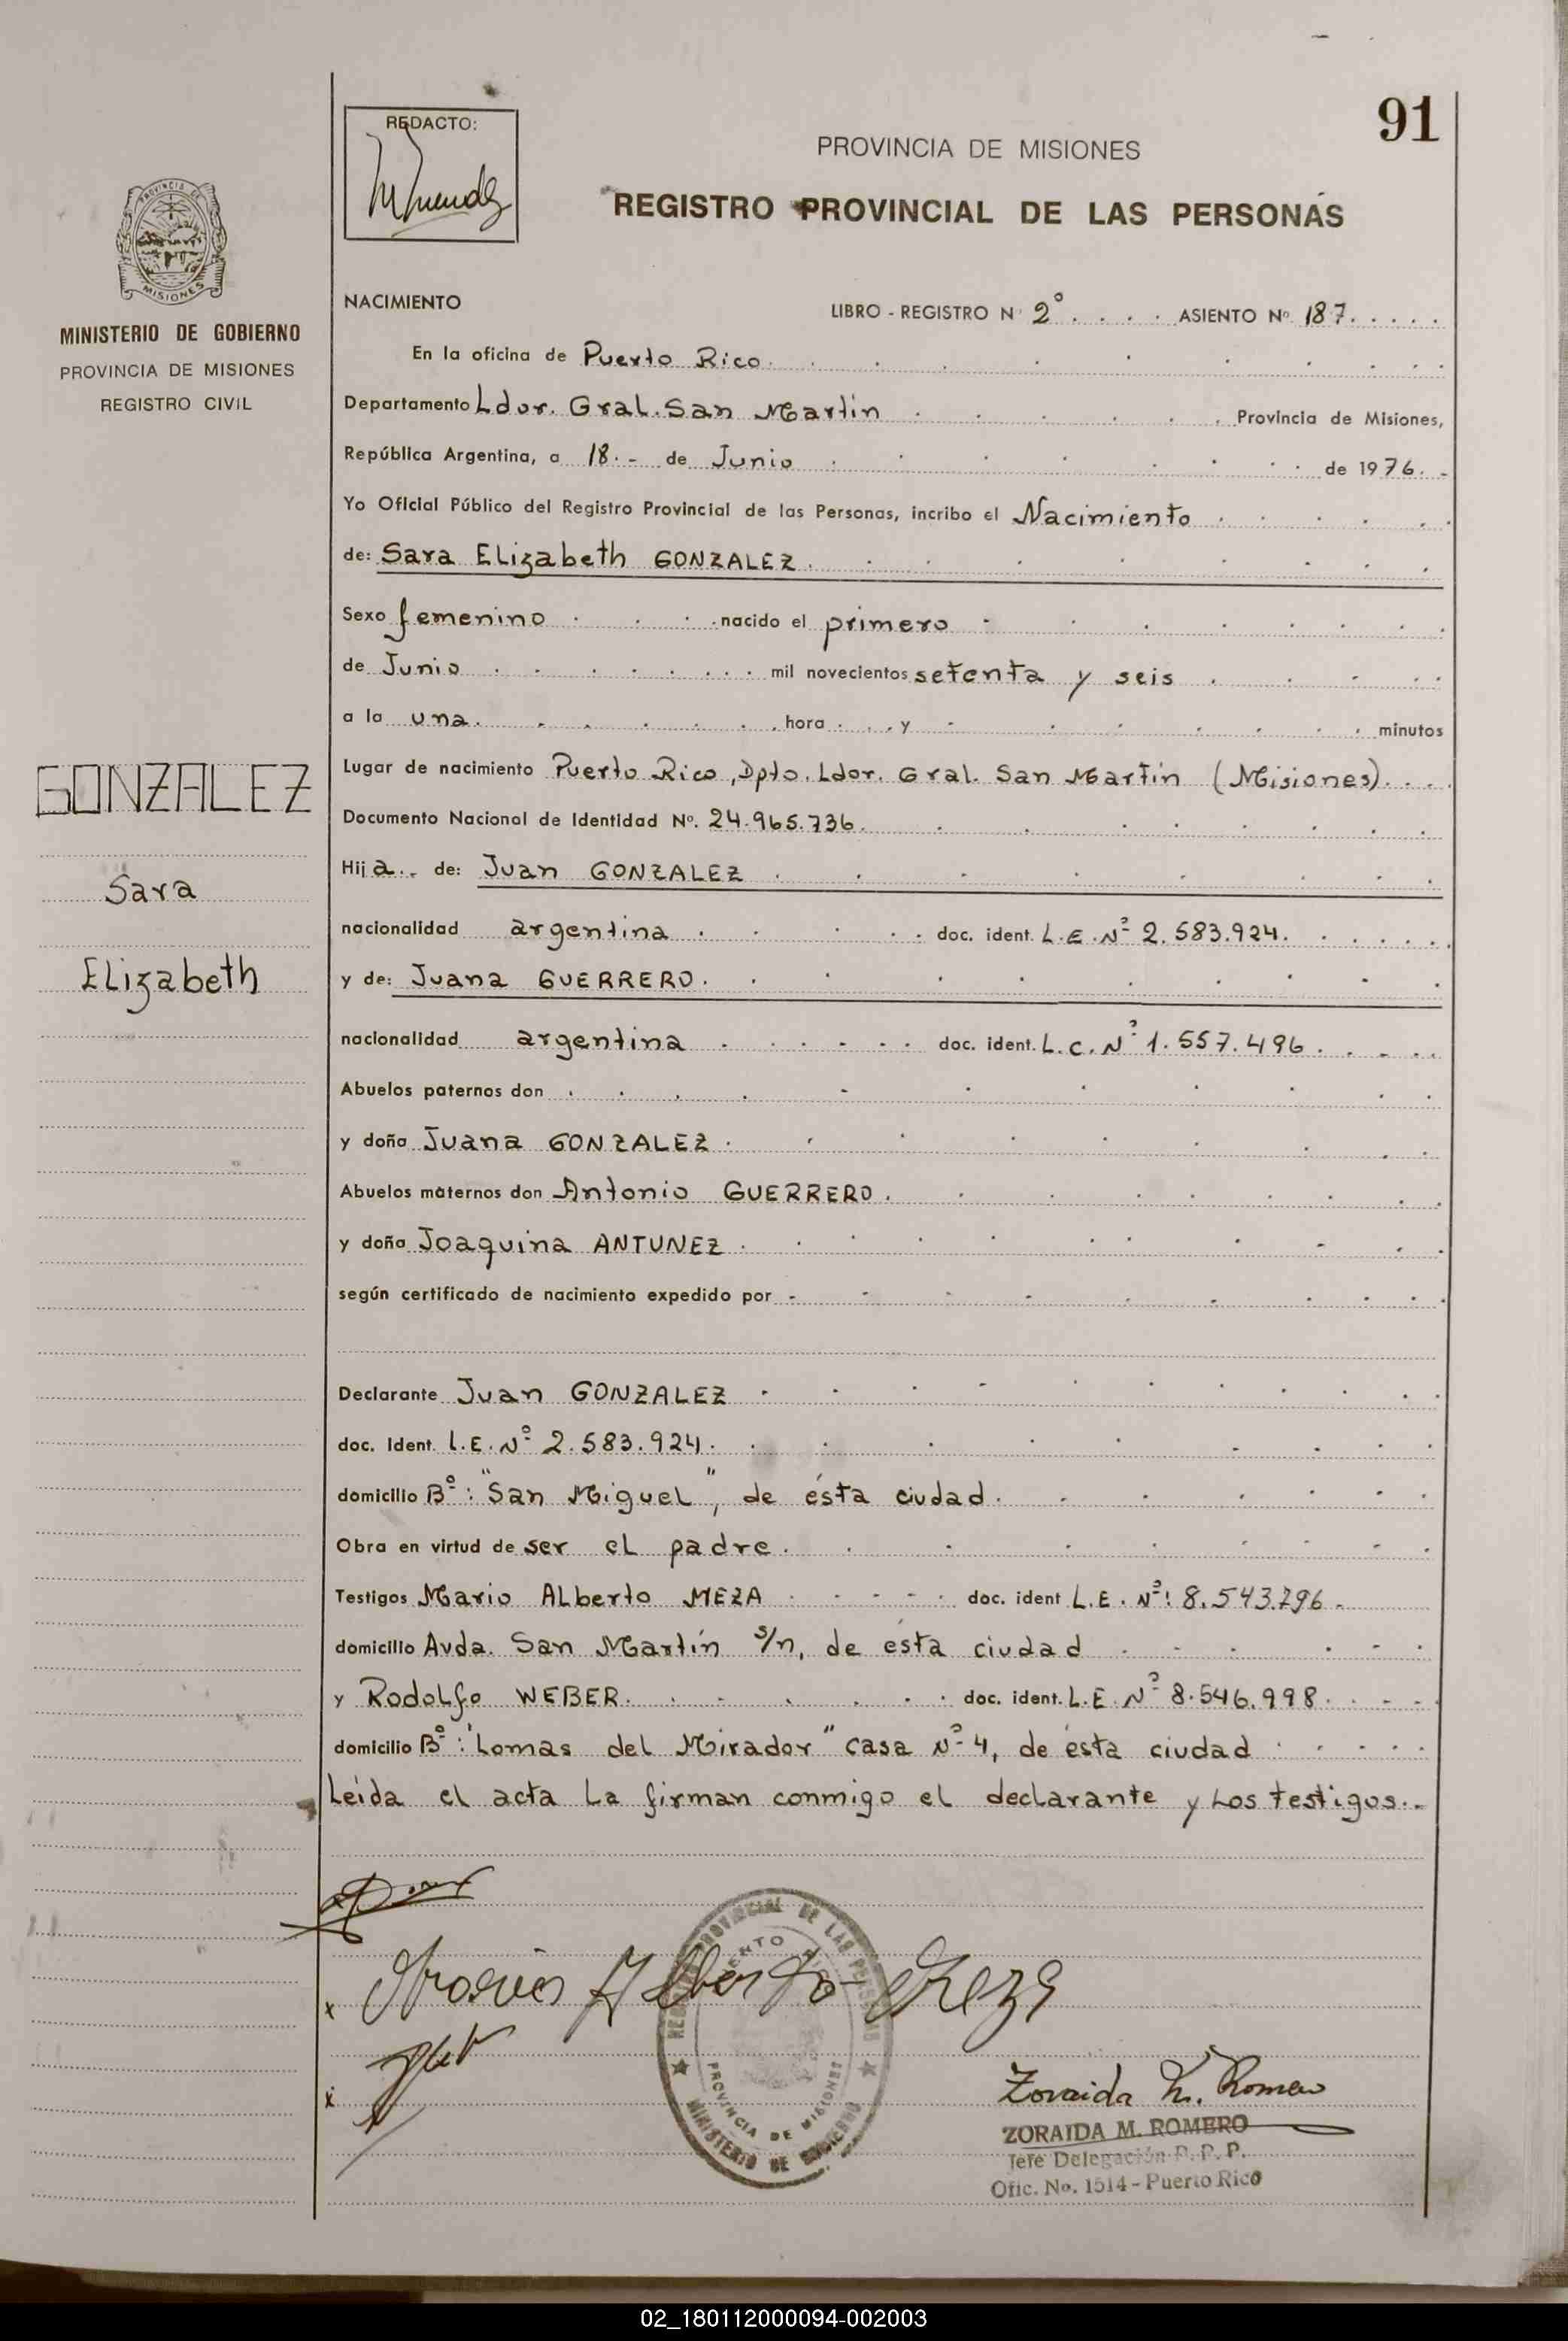 91
REDACTO:
PROVINCIA DE MISIONES
REGISTRO PROVINCIAL DE LAS PERSONAS
PROVINCIA DE
MISIONES
MINISTERIO DE GOBIERNO
PROVINCIA DE MISIONES
REGISTRO CIVIL
NACIMIENTO LIBRO - REGISTRO N 2º ASIENTO Nº 187
En la oficina de Puerto Rico
Departamento Ldor. Gral. San Martin Provincia de Misiones,
República Argentina, a 18.- de Junio de 1976.-
Yo Oficial Público del Registro Provincial de las Personas, incribo el Nacimiento
de: Sara Elizabeth GONZALEZ
Sexo femenino nacido el primero
de Junio mil novecientos setenta y seis
a la una hora y minutos
Lugar de nacimiento Puerto Rico, Dpto. Ldor. Gral. San Martín (Misiones)
GONZALEZ
Documento Nacional de Identidad Nº. 24.965.736
Hija de: Juan GONZALEZ
Sara
nacionalidad argentina doc. ident. L.E. Nº 2.583.924
Elizabeth
y de: Juana GUERRERO
nacionalidad argentina doc. ident. L.C. Nº 1.557.496
Abuelos paternos don
y doña Juana GONZALEZ
Abuelos maternos don Antonio GUERRERO
y doña Joaquina ANTUNEZ
según certificado de nacimiento expedido por
Declarante Juan GONZALEZ
doc. Ident. L.E. Nº 2.583.924
domicilio Bº: "San Miguel", de ésta ciudad
Obra en virtud de ser el padre
Testigos Mario Alberto MEZA doc. ident L.E. Nº: 8.543.796
domicilio Avda. San Martín s/n, de ésta ciudad
y Rodolfo WEBER doc. ident. L.E. Nº 8.546.998
domicilio Bº: "Lomas del Mirador" casa Nº 4, de ésta ciudad
Leída el acta la firman conmigo el declarante y los testigos.-
Mario Alberto Meza
REGISTRO PROVINCIAL DE LAS PERSONAS
PROVINCIA DE MISIONES
MINISTERIO DE GOBIERNO
Zoraida M. Romero
ZORAIDA M. ROMERO
Jefe Delegación R. P. P.
Ofic. No. 1514 - Puerto Rico
02_180112000094-002003